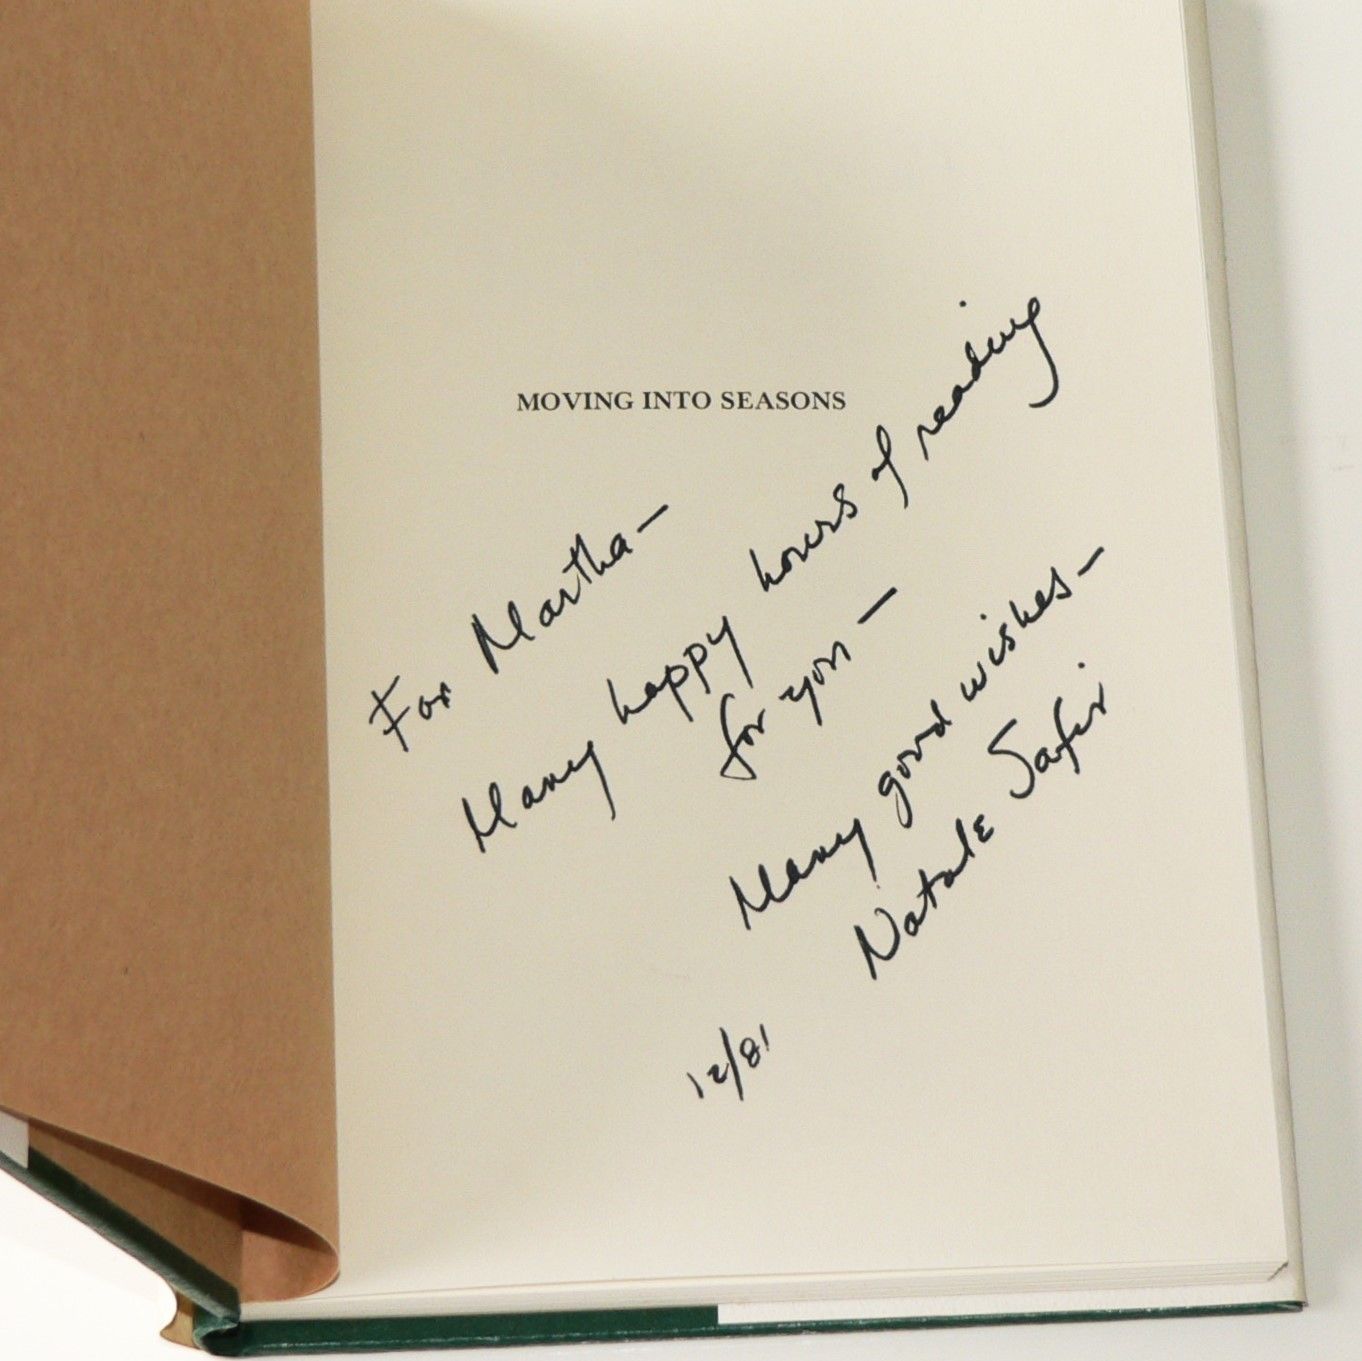 MOVING INTO SEASONS
For Martha—
Many happy hours of reading
for you—
Many good wishes—
Natalie Safir
12/81